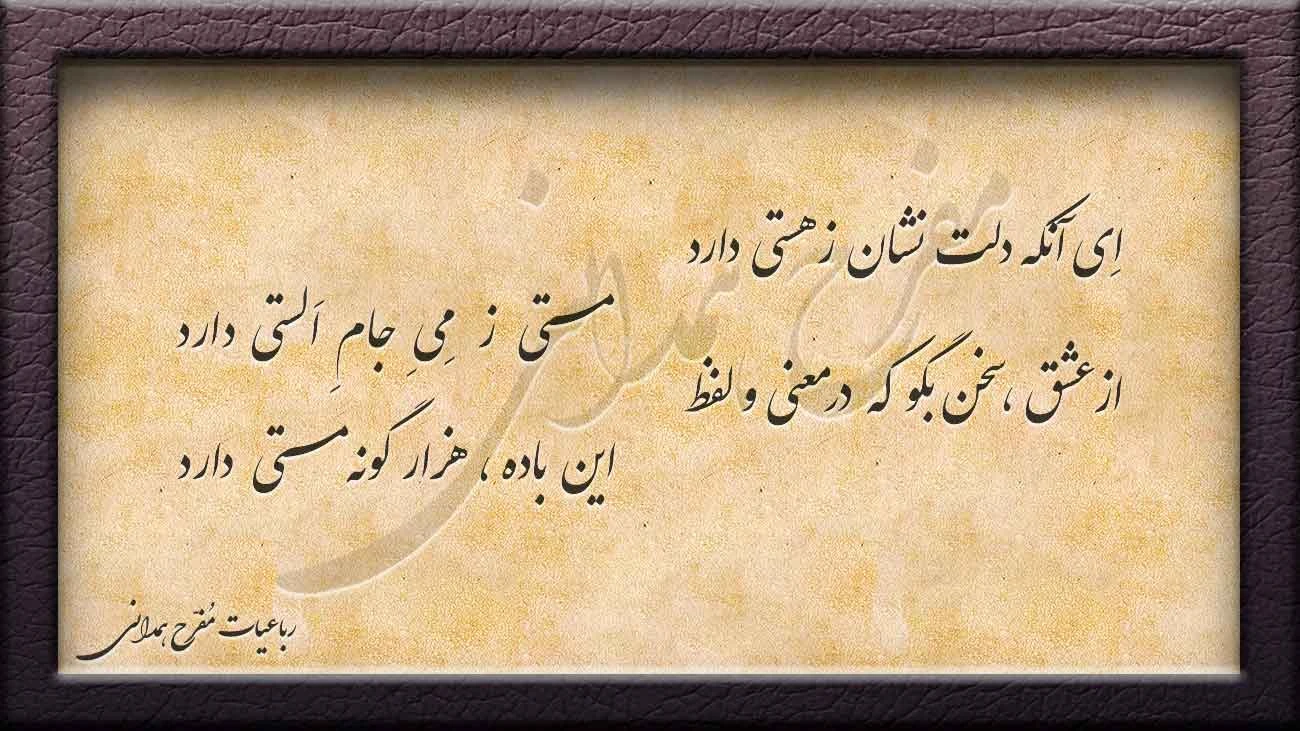 اِی آنکه دلت نشان ز هستی دارد
مستی ز مِیِ جامِ اَلستی دارد
از عشق ، سخن بگو که در معنی و لفظ
این باده ، هزار گونه مستی دارد
رباعیات مُفرّح همدانی
مفرح همدانی